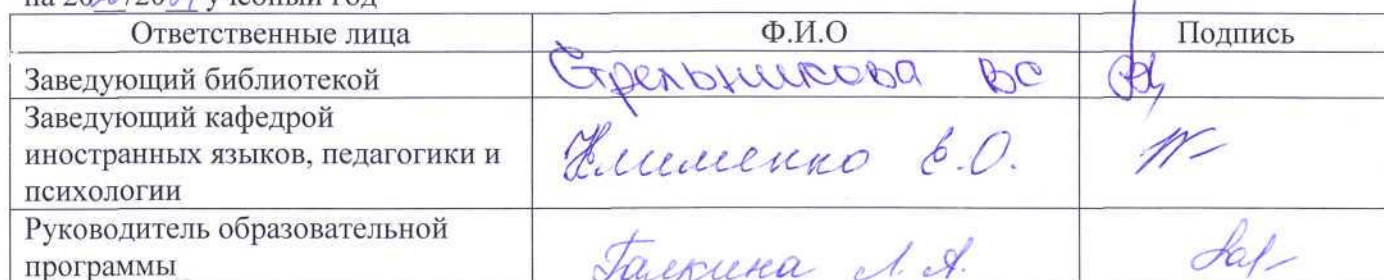 на 2020/2021 учебный год
Ответственные лица Ф.И.О Подпись
Заведующий библиотекой Стрельникова ВС
Заведующий кафедрой
иностранных языков, педагогики и
психологии Клименко Е.О.
Руководитель образовательной
программы Галкина Л.А.